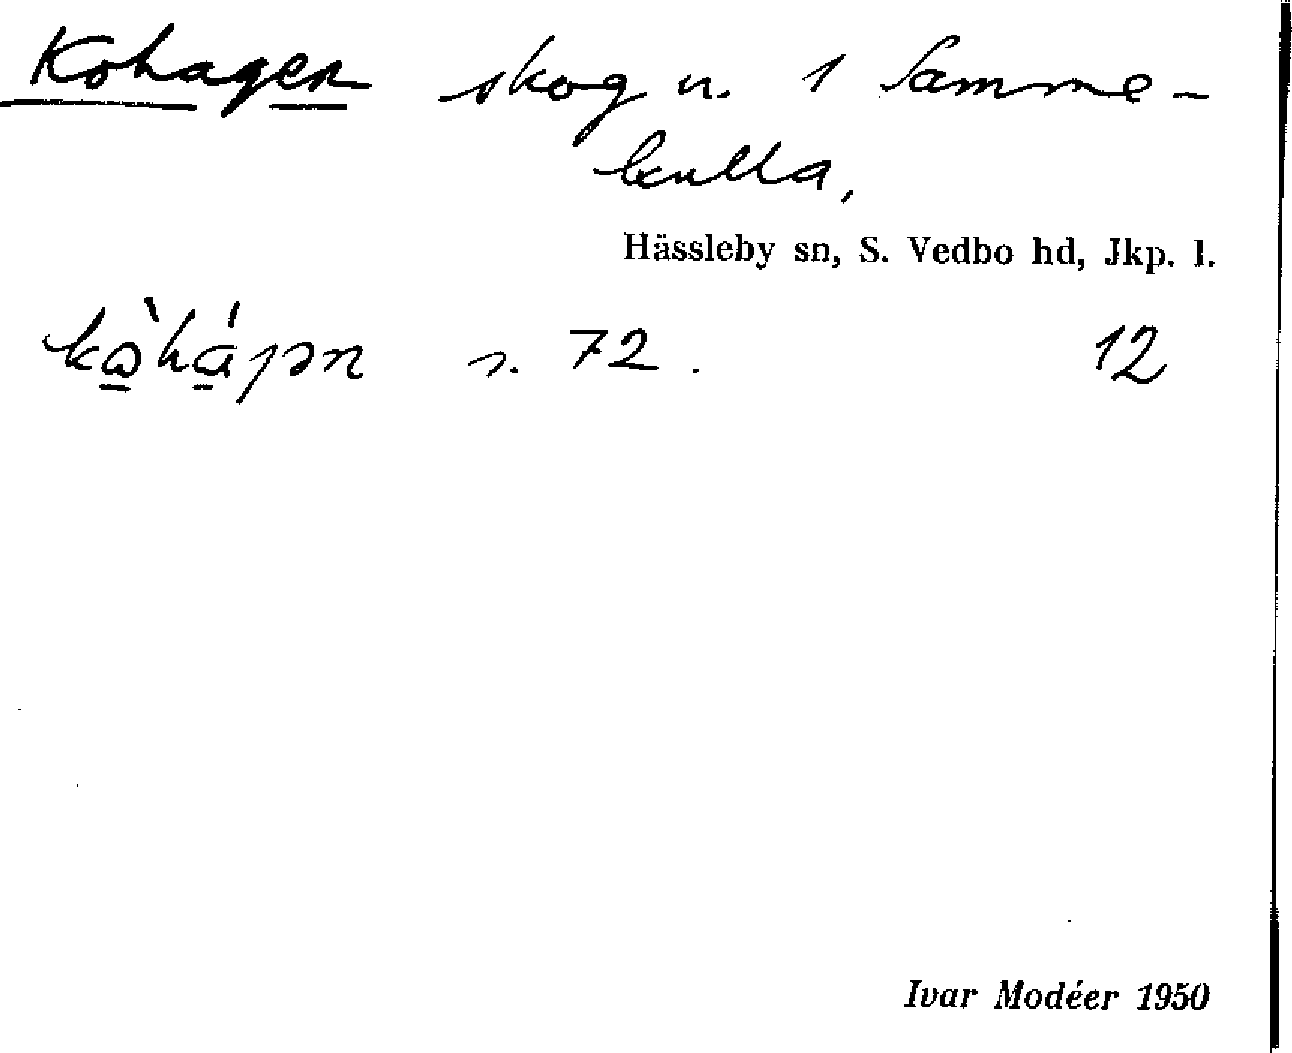 Kohagen skog n. 1 Samme-
kulla,
Hässleby sn, S. Vedbo hd, Jkp. l.
s. 72. 12
Ivar Modéer 1950